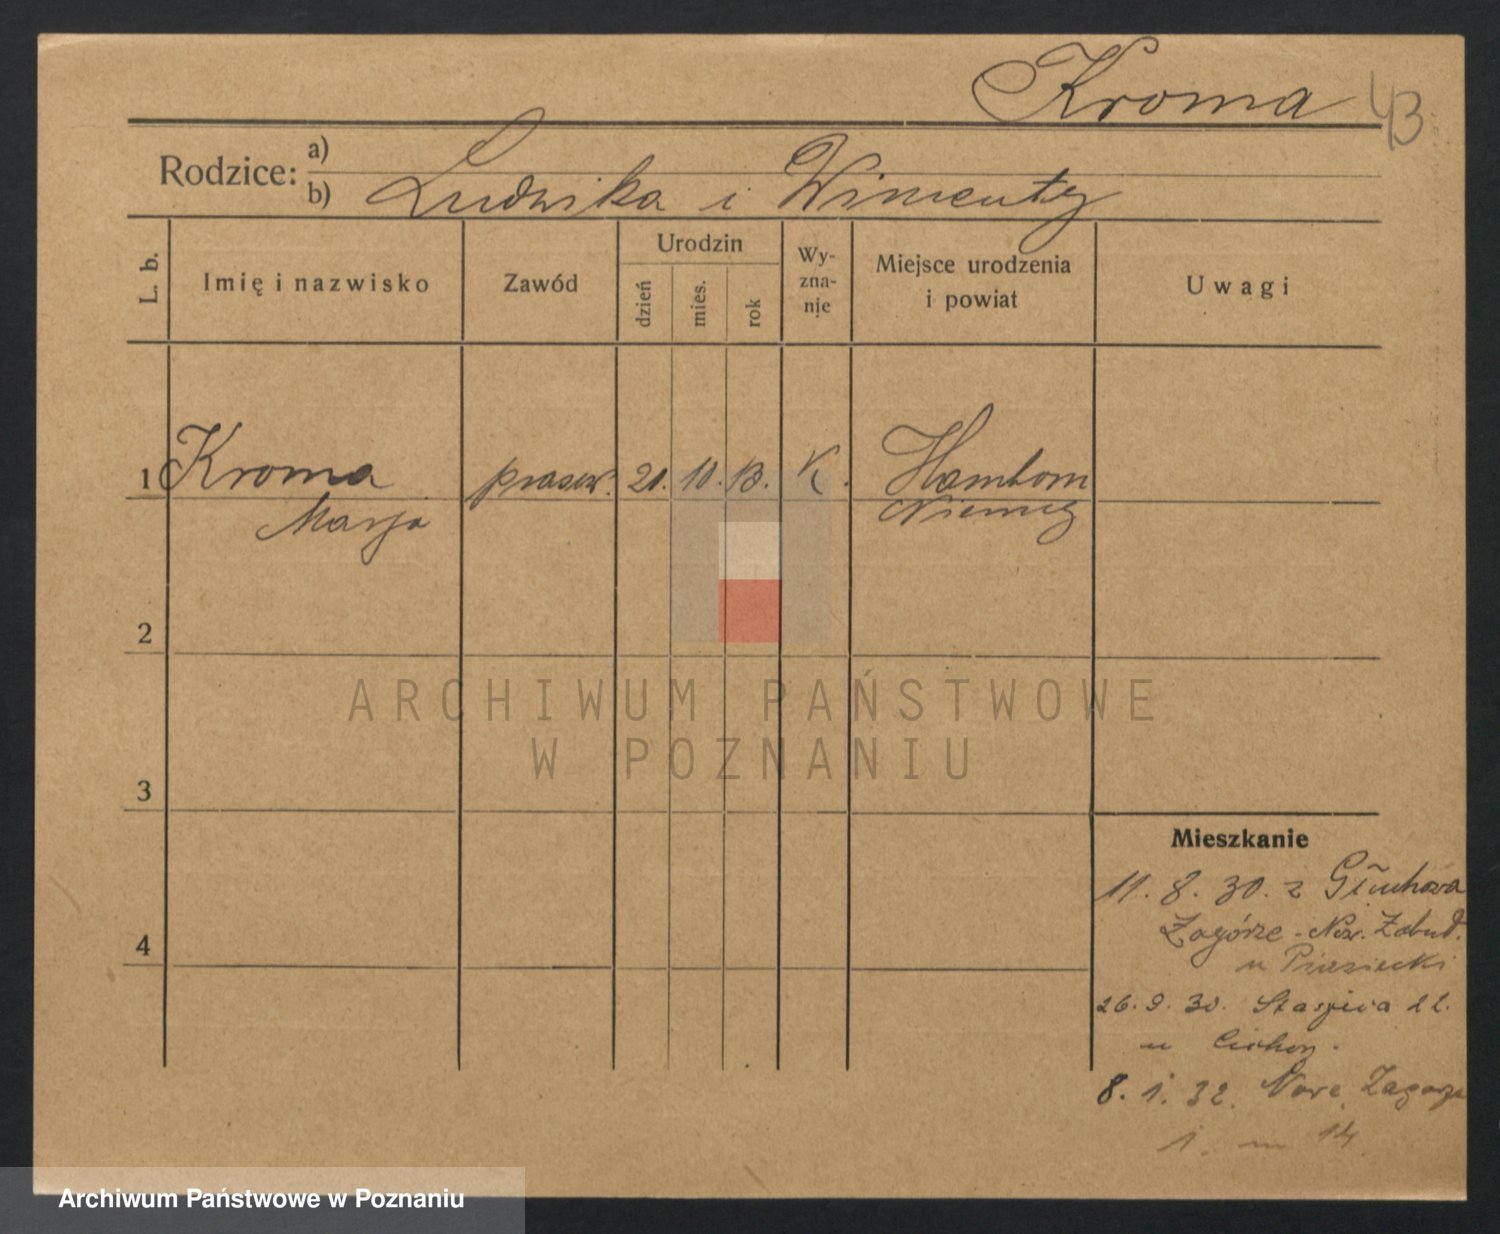 Kroma 43
Rodzice: a)
b) Ludwika i Wincenty
L. b.
Imię i nazwisko
Zawód
Urodzin
dzień
mies.
rok
Wy-
zna-
nie
Miejsce urodzenia
i powiat
Uwagi
1 Kroma prasow. 21. 10. 13. K. Hamborn
Marja Niemcy
2
3
4
Mieszkanie
11. 8. 30. z Głuchowa
Zagórze - Now. Zabud.
u Piasecki
26. 9. 30. Staszica 22.
u Cichon.
8. 1. 32. Nowe Zagorze
1. m 14
ARCHIWUM PAŃSTWOWE
W POZNANIU
Archiwum Państwowe w Poznaniu